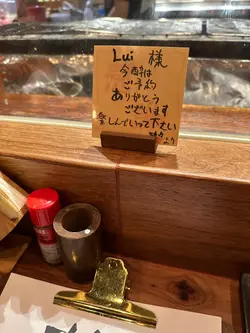 Lui 様
今宵は
ご予約
ありがとう
ございます
楽しんでいって下さい
より